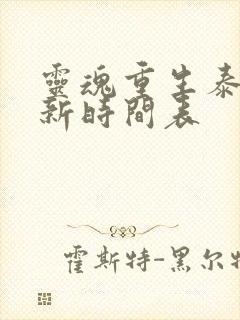 靈魂重生泰
新時間表
霍斯特-黑尔特